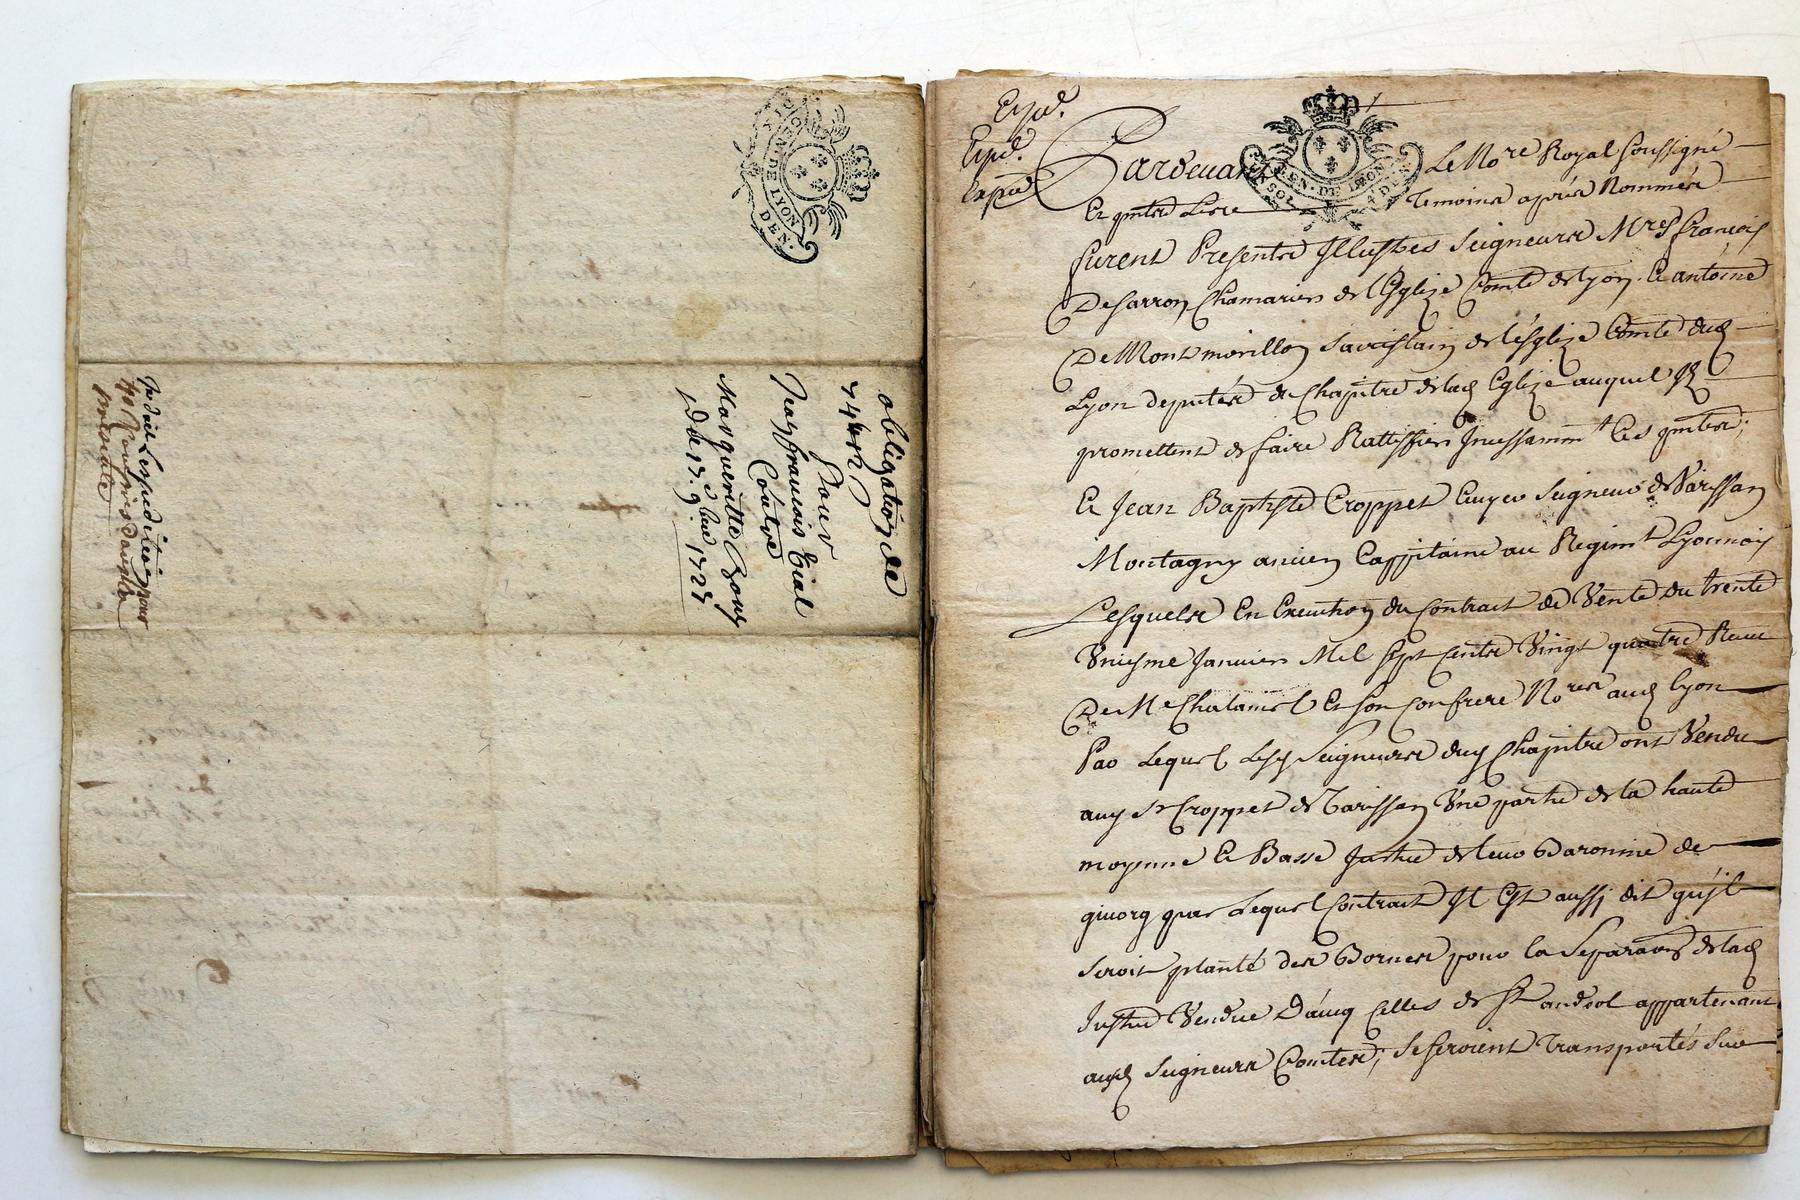 obligation de
744#
Pour
Jean françois Eial
Contre
1725
GEN. DE LYON
DEN.
Expéd.
Expéd.
Expéd.
GEN. DE LYON
SOL
DEN
Pardevant Le Nore Royal soussigné
Et Temoins aprés Nommés
furent Presents Illustres Seigneurs Mres françois
De sarron Chamarier de l'Eglize Comte de lyon Et antoine
De Montmorillon sacristain de l'esglize Comte dud
Lyon deputés du Chapitre de lad Eglize auquel Ils
promettent de faire Rattiffier Incessammt Ces pntes;
Et Jean Baptiste Croppet Ecuyer Seigneur de Varissan
Montagny ancien Cappitaine au Regimt Lyonnois
Lesquels En Execution du Contract de Vente du trente
Vniesme Janvier Mil sept cents Vingt quatre Receu
De Me Chalamel Et son Confrere Nores aud lyon
Par Lequel Lesd Seigneurs dud Chapitre ont Vendu
aud Sr Croppet de Varissan Vne partie de la haute
moyenne Et Basse Justice de leur Baronnie de
givorg par Lequel Contract Il Est aussi dit qu'il
seroit planté des Bornes pour la Separation de lad
Justice Vendue D'aueq Celles de St andeol appartenant
auxd Seigneurs Comtes; se seroient Transportés Sur